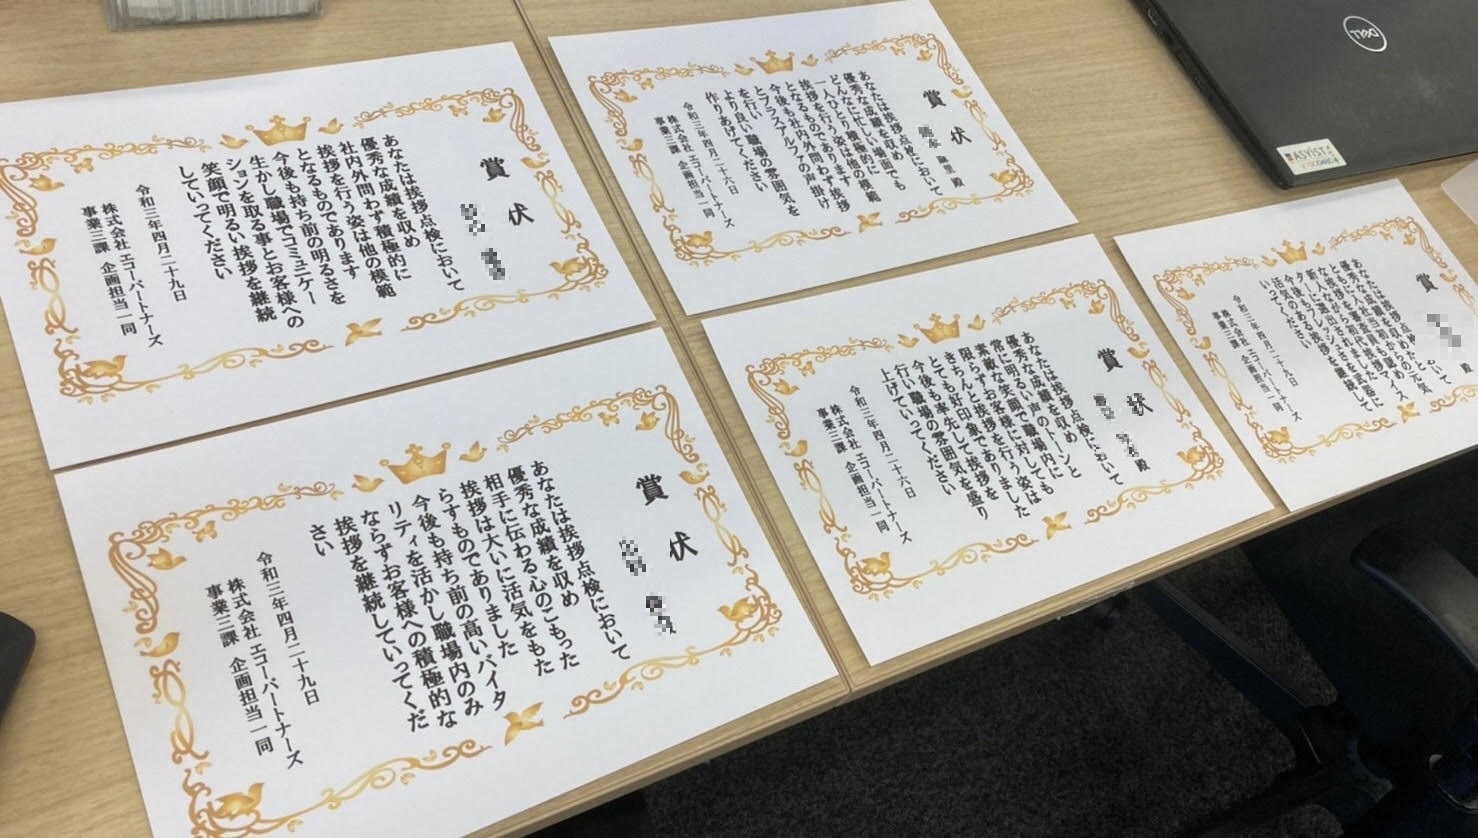 賞状
あなたは挨拶点検において
優秀な成績を収め
社内外問わず積極的に
挨拶を行う姿は他の模範
となるものであります
今後も持ち前の明るさを
生かし職場でコミュニケー
ションを取る事とお客様への
笑顔で明るい挨拶を継続
していってください
令和三年四月二十九日
株式会社 エコーパートナーズ
事業三課 企画担当一同
賞状
殿
あなたは挨拶点検において
優秀な成績を収め
どんなに忙しい場面でも
一人ひとりに積極的に
挨拶を行う姿は他の模範
となるものであります
今後も社内外問わず挨拶
とプラスアルファの声掛け
を行い
より良い職場の雰囲気を
作りあげてください
令和三年四月二十六日
株式会社 エコーパートナーズ
事業三課 企画担当一同
賞状
あなたは挨拶点検において
優秀な成績を収め
相手に伝わる心のこもった
挨拶は大いに活気をもた
らすものでありました
今後も持ち前の高いバイタ
リティを活かし職場内のみ
ならずお客様への積極的な
挨拶を継続していってくだ
さい
令和三年四月二十九日
株式会社 エコーパートナーズ
事業三課 企画担当一同
賞状
殿
あなたは挨拶点検において
優秀な成績を収め
常に明るい声のトーンと
素敵な笑顔で職場内にも
限らずお客様に対しても
きちんと挨拶を行う姿は
とても好印象でありました
今後も率先して挨拶を
行い職場の雰囲気を盛り
上げていってください
令和三年四月二十六日
株式会社 エコーパートナーズ
事業三課 企画担当一同
賞
殿
優秀な成績を収め
活気のある挨拶を継続して
いってください
令和三年四月二十九日
株式会社 エコーパートナーズ
事業三課 企画担当一同
DELL
ASYIST